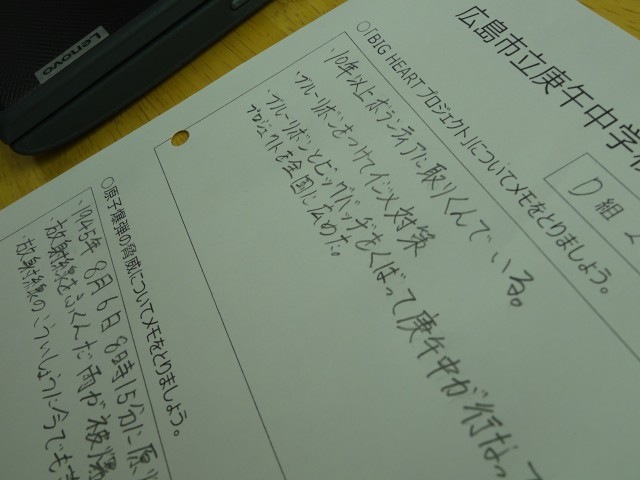 Lenovo
広島市立庚午中学校
D組
○「BIG HEARTプロジェクト」についてメモをとりましょう。
・10年以上ボランティアに取りくんでいる。
・ブルーリボンをつけてイジメ対策
・ブルーリボンとビッグバッヂをくばって庚午中が行なって
プロジェクトを全国に広めた。
○原子爆弾の脅威についてメモをとりましょう。
・1945年8月6日8時15分に原
・放射線をふくんだ雨が被爆
・放射線のこういしょうに今でも